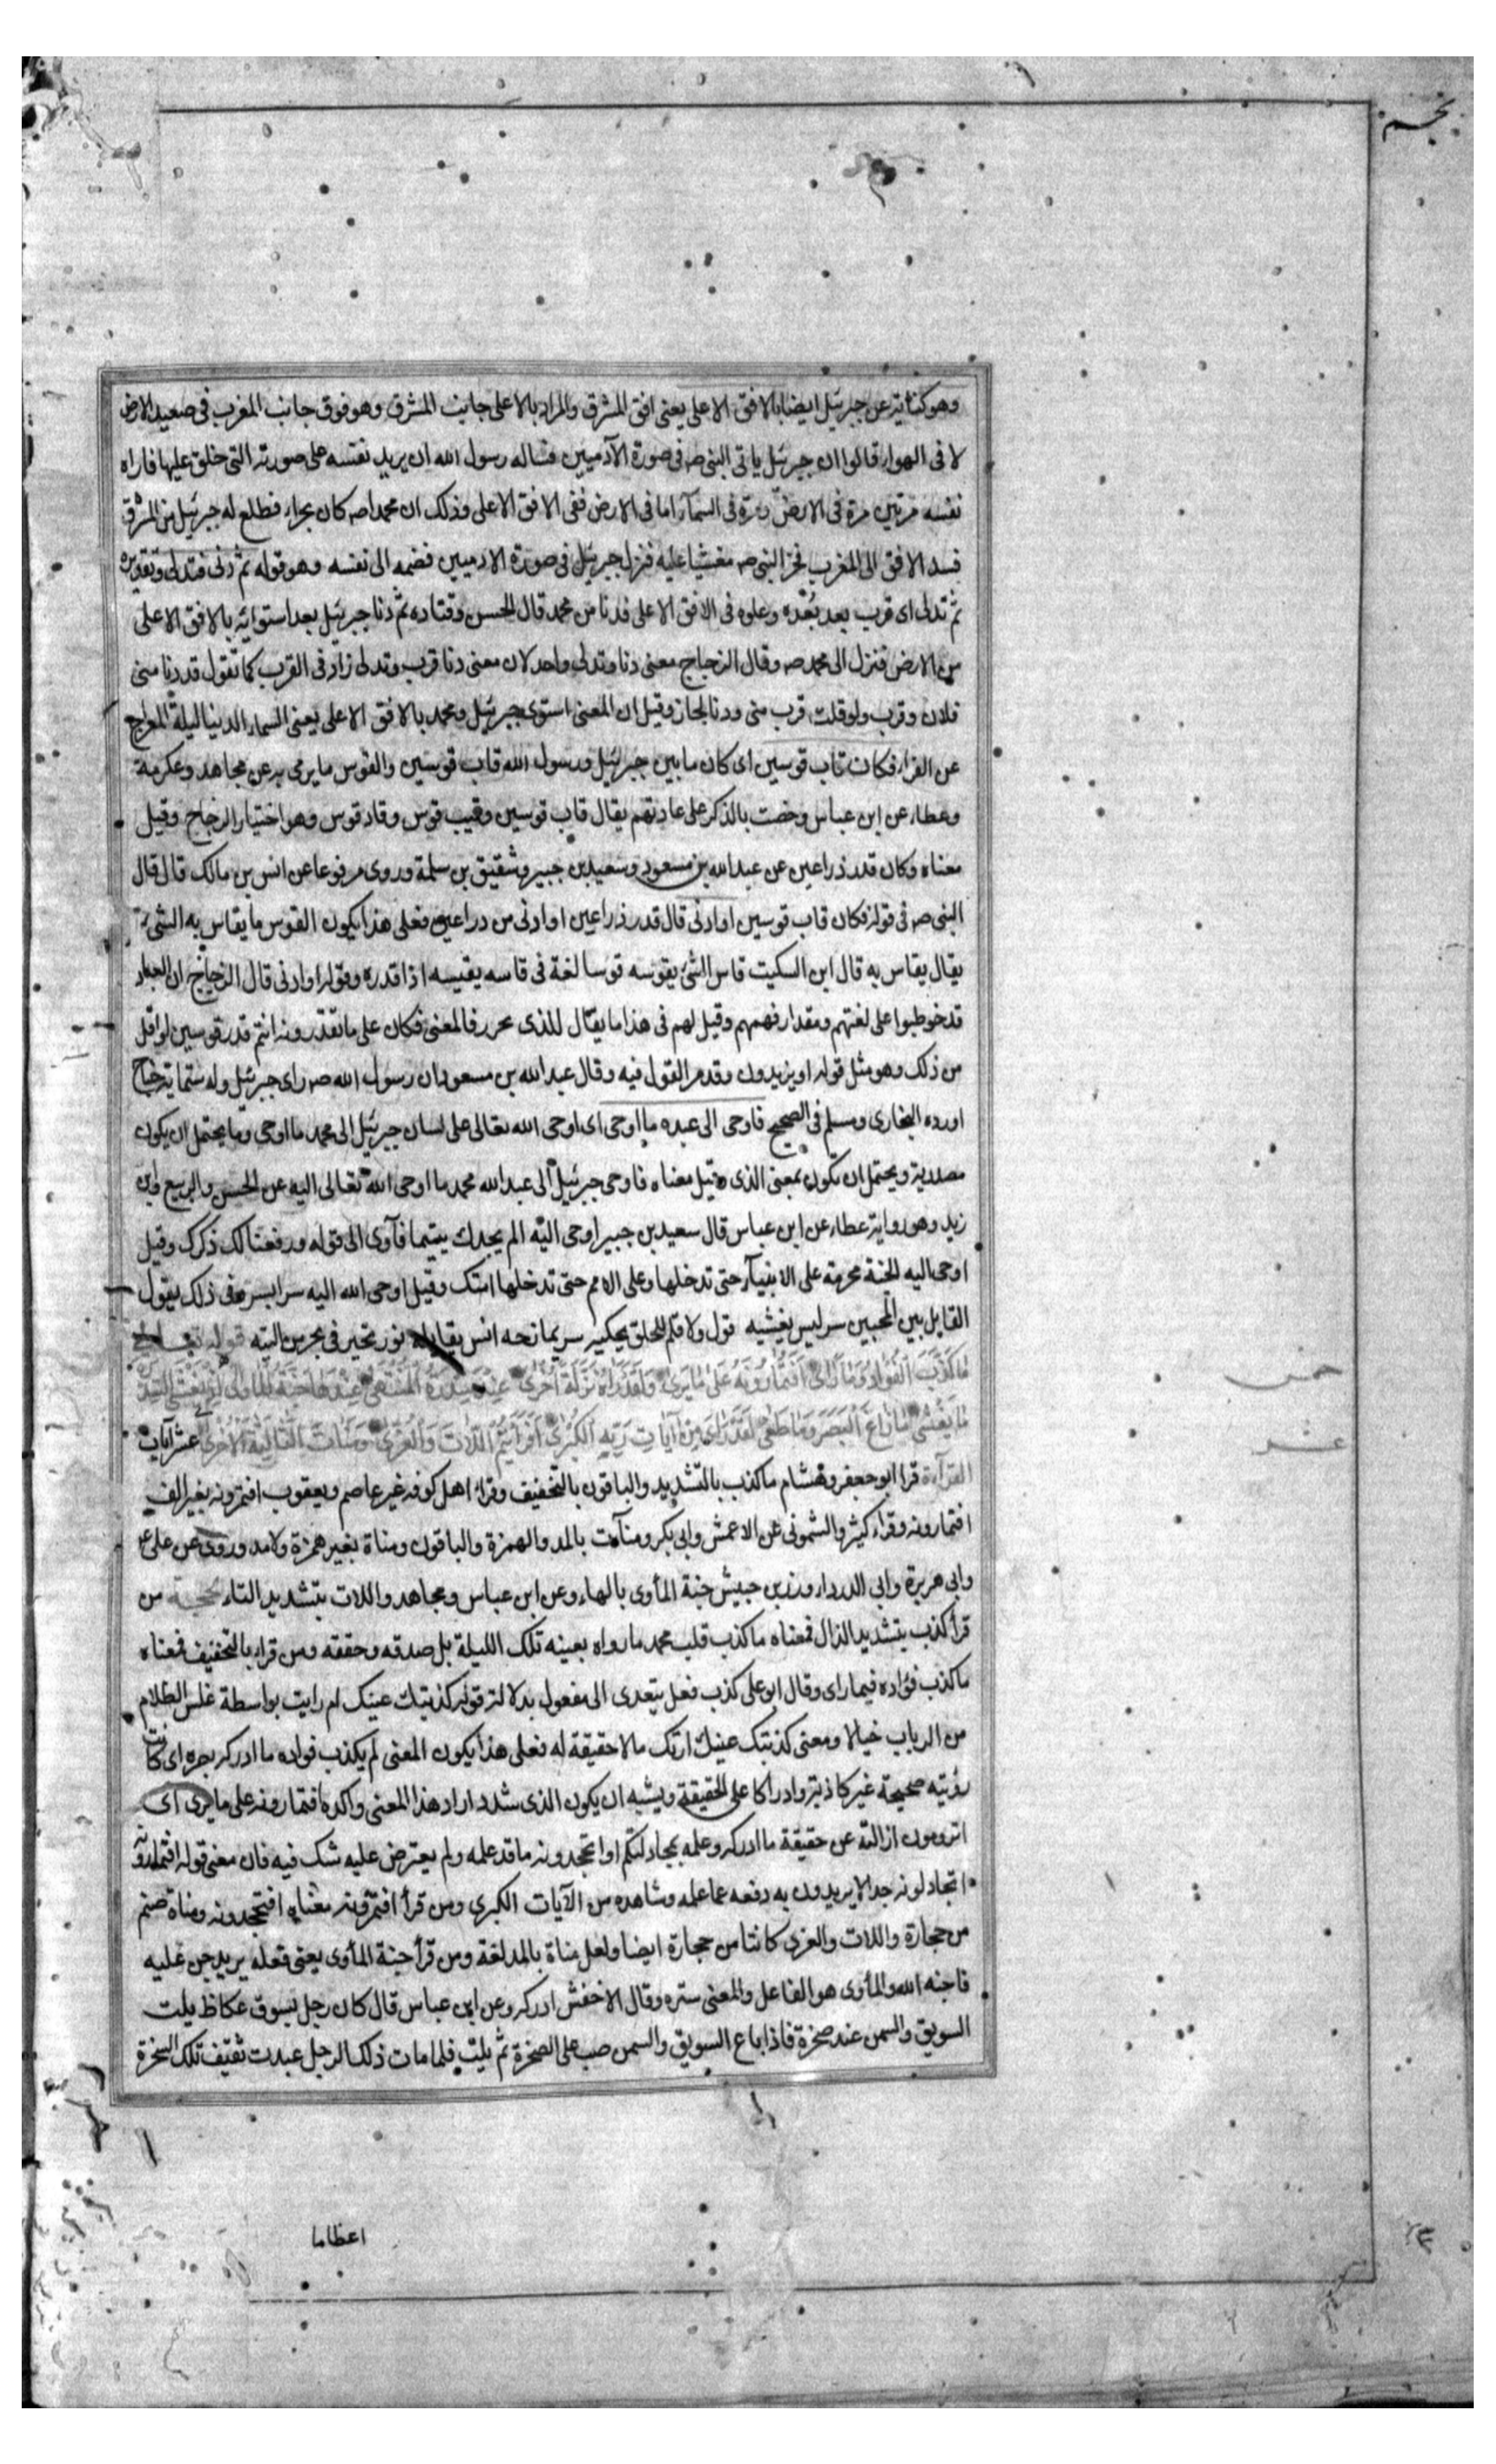 نجم
وهو كناية عن جبرئيل ايضا بالافق الاعلى يعنى افق المشرق والمراد بالاعلى جانب المشرق وهو فوق جانب المغرب فى صعيد الارض
لا فى الهواء قالوا ان جبرئيل ياتى النبى صه فى صورة الآدميين فساله رسول الله ان يريه نفسه على صورته التى خلق عليها فاراه
نفسه مرتين مرة فى الارض ومرة فى السمآء اما فى الارض ففى الافق الاعلى وذلك ان محمدا صه كان بحراء فطلع له جبرئيل من المشرق
فسد الافق الى المغرب فخر النبى صه مغشيا عليه فنزل جبرئيل فى صورة الادميين فضمه الى نفسه وهو قوله ثم دنى فتدلى وتقديره
ثم تدلى اى قرب بعد بُعْده وعلوه فى الافق الاعلى فدنا من محمد قال الحسن وقتاده ثم دنا جبرئيل بعد استوائه بالافق الاعلى
من الارض فنزل الى محمد صه وقال الزجاج معنى دنا وتدلى واحد لان معنى دنا قرب وتدلى زاد فى القرب كما تقول قد دنا منى
فلان وقرب ولو قلت قرب منى ودنا لجاز وقيل ان المعنى استوى جبرئيل ومحمد بالافق الاعلى يعنى السماء الدنيا ليلة المعراج
عن الفراء فكان قاب قوسين اى كان ما بين جبرئيل ورسول الله قاب قوسين والقوس ما يرمى به عن مجاهد وعكرمة
وعطاء عن ابن عباس وخصت بالذكر على عادتهم يقال قاب قوسين وقيب قوس وقاد قوس وهو اختيار الزجاج وقيل
معناه وكان قدر ذراعين عن عبد الله بن مسعود وسعيد بن جبير وشقيق بن سلمة وروى مرفوعا عن انس بن مالك قال قال
النبى صه فى قوله فكان قاب قوسين او ادنى قال قدر ذراعين او ادنى من دراعين فعلى هذا يكون القوس ما يقاس به الشىء
يقال يقاس به قال ابن السكيت قاس الشئ يقوسه قوسا لغة فى قاسه يقيسه اذا قدره وقوله او ادنى قال الزجاج ان العباد
قد خوطبوا على لغتهم ومقدار فهمهم وقيل لهم فى هذا ما يقال للذى يحرر فالمعنى فكان على ما تقدرونه انتم قدر قوسين او اقل
من ذلك وهو مثل قوله او يزيدون وقد مر القول فيه وقال عبد الله بن مسعود ان رسول الله صه راى جبرئيل وله ستماية جناح
اورده البخارى ومسلم فى الصحيح فاوحى الى عبده ما اوحى اى اوحى الله تعالى على لسان جبرئيل الى محمد ما اوحى وما يحتمل ان يكون
مصدرية ويحتمل ان تكون بمعنى الذى وقيل معناه فاوحى جبرئيل الى عبد الله محمد ما اوحى الله تعالى اليه عن الحسن والربيع وابن
زيد وهو رواية عطاء عن ابن عباس قال سعيد بن جبير اوحى اليه الم يجدك يتيما فآوى الى قوله ورفعنا لك ذكرك وقيل
اوحى اليه الجنة محرمة على الانبيآء حتى تدخلها وعلى الامم حتى تدخلها امتك وقيل اوحى الله اليه سرا بسر وفى ذلك يقول
القايل بين المحبين سر ليس يفشيه قول ولا قلم للخلق يحكيه سر يمازحه انس يقابله نور تحير فى بحر من التيه قوله تعالى
مَا كَذَبَ الْفُؤَادُ مَا رَاى اَفَتُمَارُونَهُ عَلَى مَا يَرَى وَلَقَدْ رَاهُ نَزْلَةً اُخْرَى عِنْدَ سِدْرَةِ الْمُنْتَهَى عِنْدَهَا جَنَّةُ الْمَاْوَى اِذْ يَغْشَى السِّدْرَةَ
مَا يَغْشَى مَا زَاغَ الْبَصَرُ وَمَا طَغَى لَقَدْ رَاى مِنْ آيَاتِ رَبِّهِ الْكُبْرَى اَفَرَاَيْتُمُ اللَّاتَ وَالْعُزَّى وَمَنَاتَ الثَّالِثَةَ الْاُخْرَى عشر آيات
القرآءة قرا ابو جعفر وهشام ما كذب بالتشديد والباقون بالتخفيف وقراء اهل كوفه غير عاصم ويعقوب افتمرونه بغير الف
افتمارونه وقراء كثير والشمونى عن الاعمش وابى بكر ومنآءت بالمد والهمزة والباقون ومناة بغير همزة ولا مد وروى عن على ع
وابى هريرة وابى الدرداء وزر بن حبيش جنة المأوى بالهاء وعن ابن عباس ومجاهد واللات بتشديد التاء الحجة من
قرأ كذب بتشديد الذال فمعناه ما كذب قلب محمد ما راه بعينه تلك الليلة بل صدقه وحققه ومن قراء بالتخفيف فمعناه
ما كذب فؤاده فيما راى وقال ابو على كذب فعل يتعدى الى مفعول بدلالة قوله كذبتك عينك ام رايت بواسطة غلس الظلام
من الرباب خيالا ومعنى كذبتك عينك ارتك ما لا حقيقة له فعلى هذا يكون المعنى لم يكذب فواده ما ادركه بصره اى كانت
رؤيته صحيحة غير كاذبة وادراكا على الحقيقة ويشبه ان يكون الذى شدد اراد هذا المعنى واكده افتمارونه على ما يرى اى
اترومون ازالته عن حقيقة ما ادركه وعلمه بمجادلتكم او اتجحدونه ما قد علمه ولم يعترض عليه شك فيه فان معنى قوله افتمارونه
اتجادلونه جدالا يريدون به دفعه عما علمه وشاهده من الآيات الكبرى ومن قرأ افتمرونه معناه افتجحدونه ومناة صنم
من حجارة واللات والعزى كانتا من حجارة ايضا ولعل مناة بالمد لغة ومن قرأ جنة المأوى يعنى فعله يريد جن عليه
فاجنه الله والمأوى هو الفاعل والمعنى ستره وقال الاخفش ادركه وعن ابن عباس قال كان رجل بسوق عكاظ يلت
السويق والسمن عند صخرة فاذا باع السويق والسمن صب على الصخرة ثم يلت فلما مات ذلك الرجل عبدت ثقيف تلك الصخرة
اعظاما